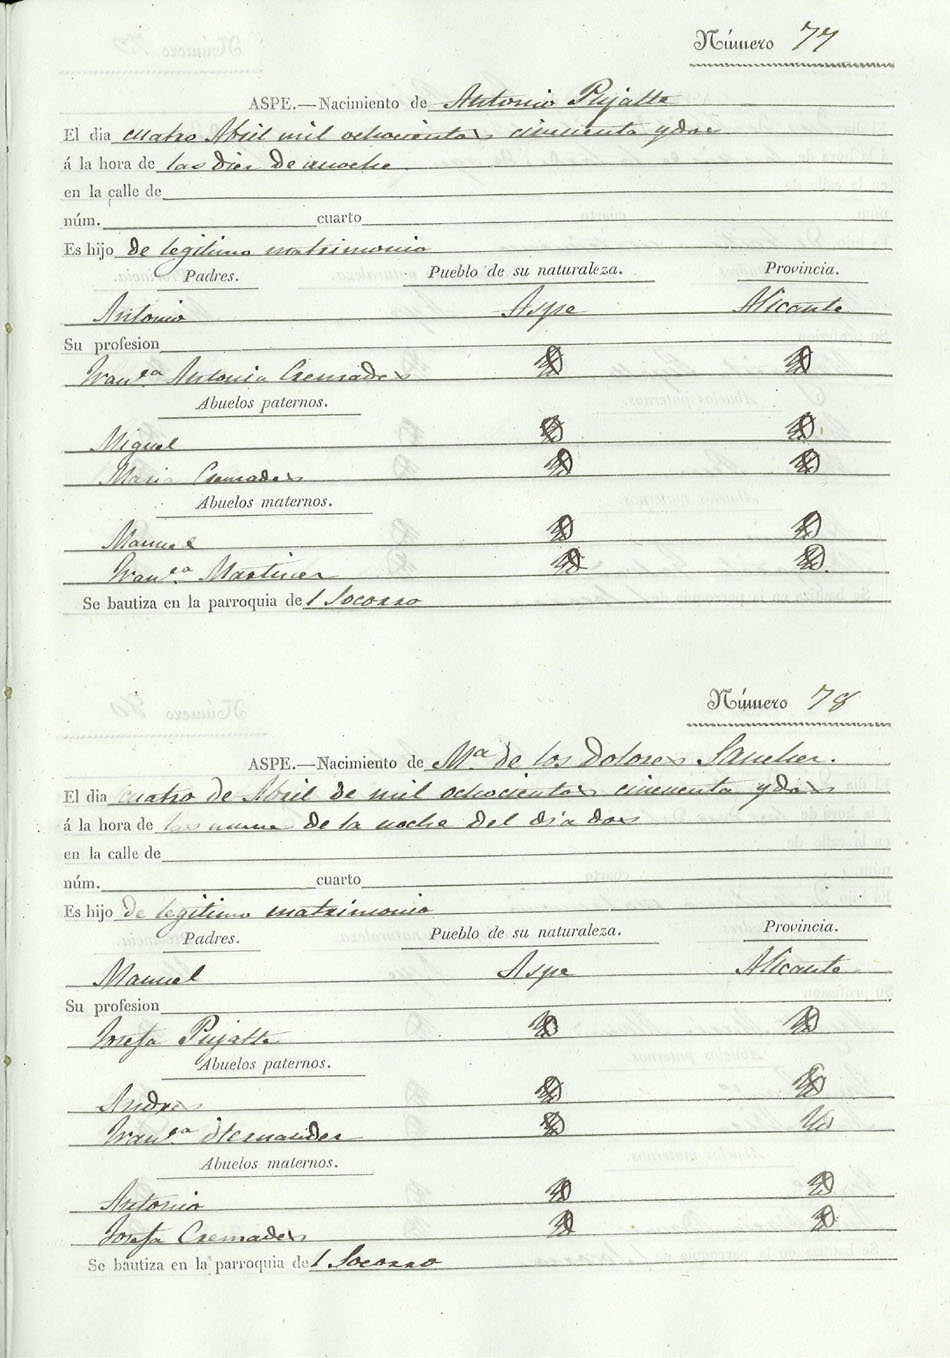 Número 77
ASPE.—Nacimiento de Antonio Pujalte
El dia cuatro Abril mil ochocientos cincuenta y dos
á la hora de las diez de anoche
en la calle de
núm. cuarto
Es hijo de legitimo matrimonio
Padres. Pueblo de su naturaleza. Provincia.
Antonio Aspe Alicante
Su profesion
Franca Antonia Cremades
Abuelos paternos.
Miguel
Maria Cremades
Abuelos maternos.
Manuel
Franca Martinez
Se bautiza en la parroquia de l Socorro
Número 78
ASPE.—Nacimiento de Ma de los Dolores Sanchez.
El dia cuatro de Abril de mil ochocientos cincuenta y dos
á la hora de las nueve de la noche del dia dos
en la calle de
núm. cuarto
Es hijo de legitimo matrimonio
Padres. Pueblo de su naturaleza. Provincia.
Manuel Aspe Alicante
Su profesion
Josefa Pujalte
Abuelos paternos.
Andres
Franca Hernandez
Abuelos maternos.
Antonio
Josefa Cremades
Se bautiza en la parroquia de l Socorro